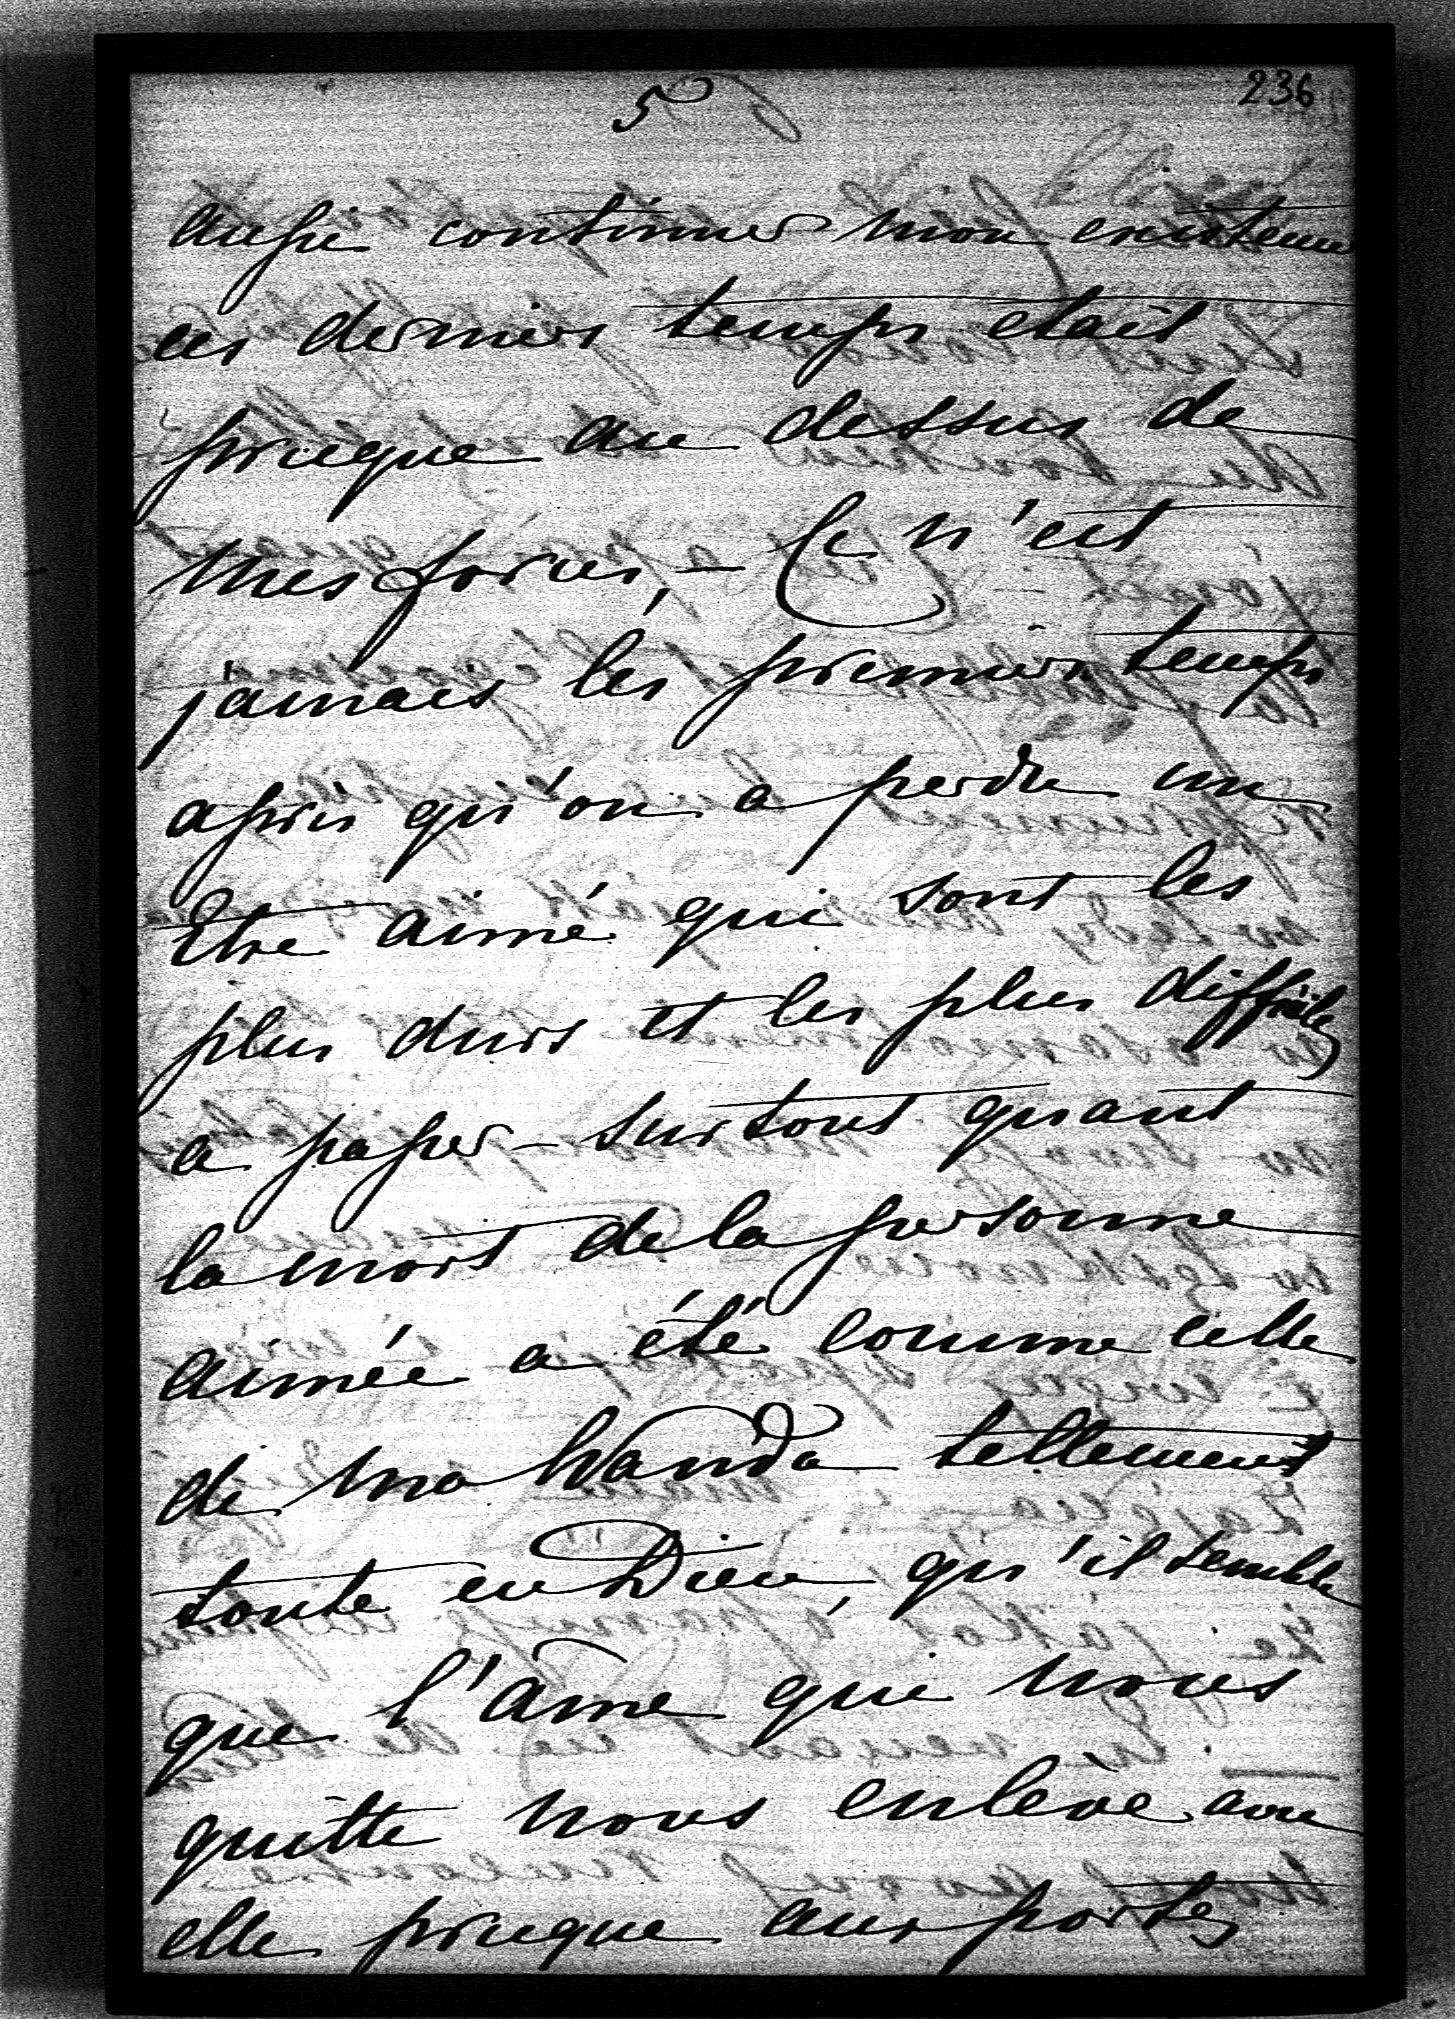 5
236
aussi continuer mon existence
ces derniers temps etait
presque au dessus de
mes forces, – Ce n'est
jamais les premiers temps
après qu'on a perdu un
Etre aimé qui sont les
plus durs et les plus difficiles
a passer – surtout quant
la mort de la personne
aimée a été comme celle
de ma Wanda tellement
toute en Dieu, qu'il semble
que l'âme qui nous
quitte nous enlève avec
elle presque aux portes